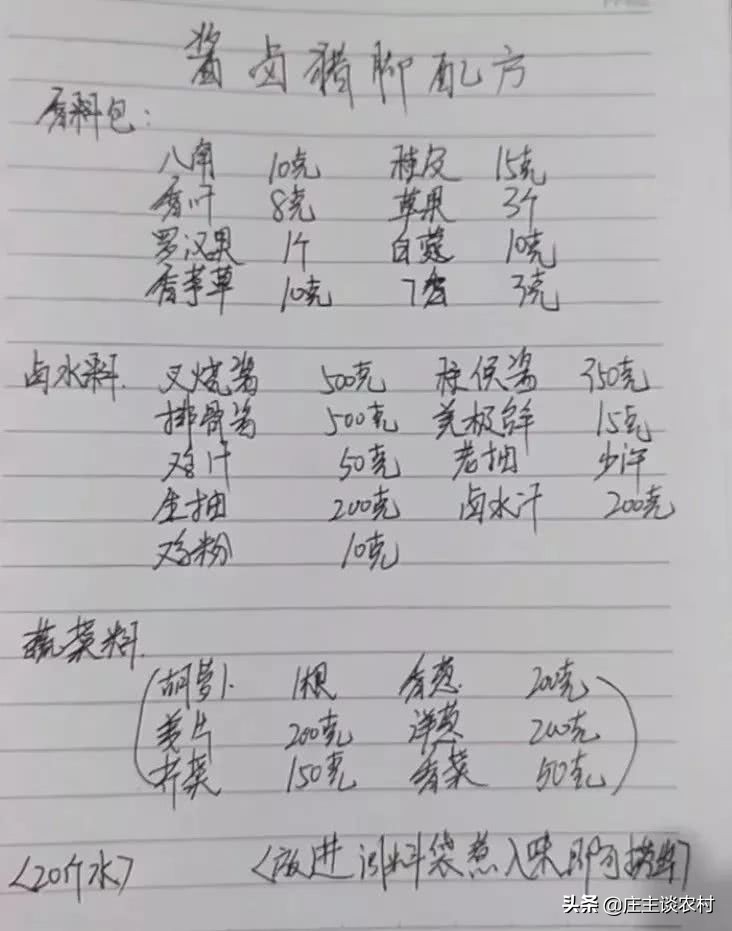 酱卤猪脚配方
香料包:
八角 10克 桂皮 15克
香叶 8克 草果 3个
罗汉果 1个 白蔻 10克
香茅草 10克 丁香 3克
卤水料. 叉烧酱 500克 柱侯酱 350克
排骨酱 500克 美极鲜 15克
鸡汁 50克 老抽 少许
生抽 200克 卤水汁 200克
鸡粉 10克
蔬菜料.
(胡萝卜 1根 香葱 200克
姜片 200克 洋葱 200克
芹菜 150克 香菜 50克)
<20斤水> <放进调料袋煮入味即可捞出>
头条 @庄主谈农村